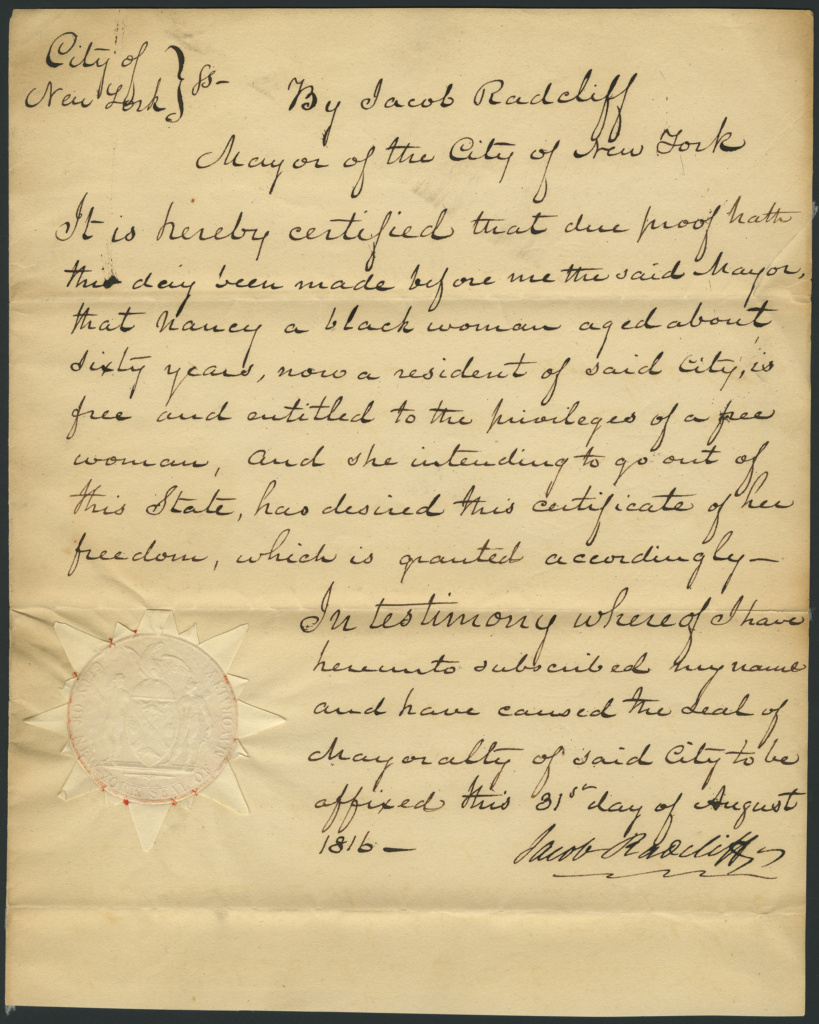 City of
New York } ss-
By Jacob Radcliff
Mayor of the City of New York
It is hereby certified that due proof hath
this day been made before me the said Mayor,
that Nancy a black woman aged about
sixty years, now a resident of said City, is
free and entitled to the privileges of a free
woman, and she intending to go out of
this State, has desired this certificate of her
freedom, which is granted accordingly—
In testimony whereof I have
hereunto subscribed my name
and have caused the seal of
Mayoralty of said City to be
affixed this 31st day of August
1816—
Jacob Radcliff